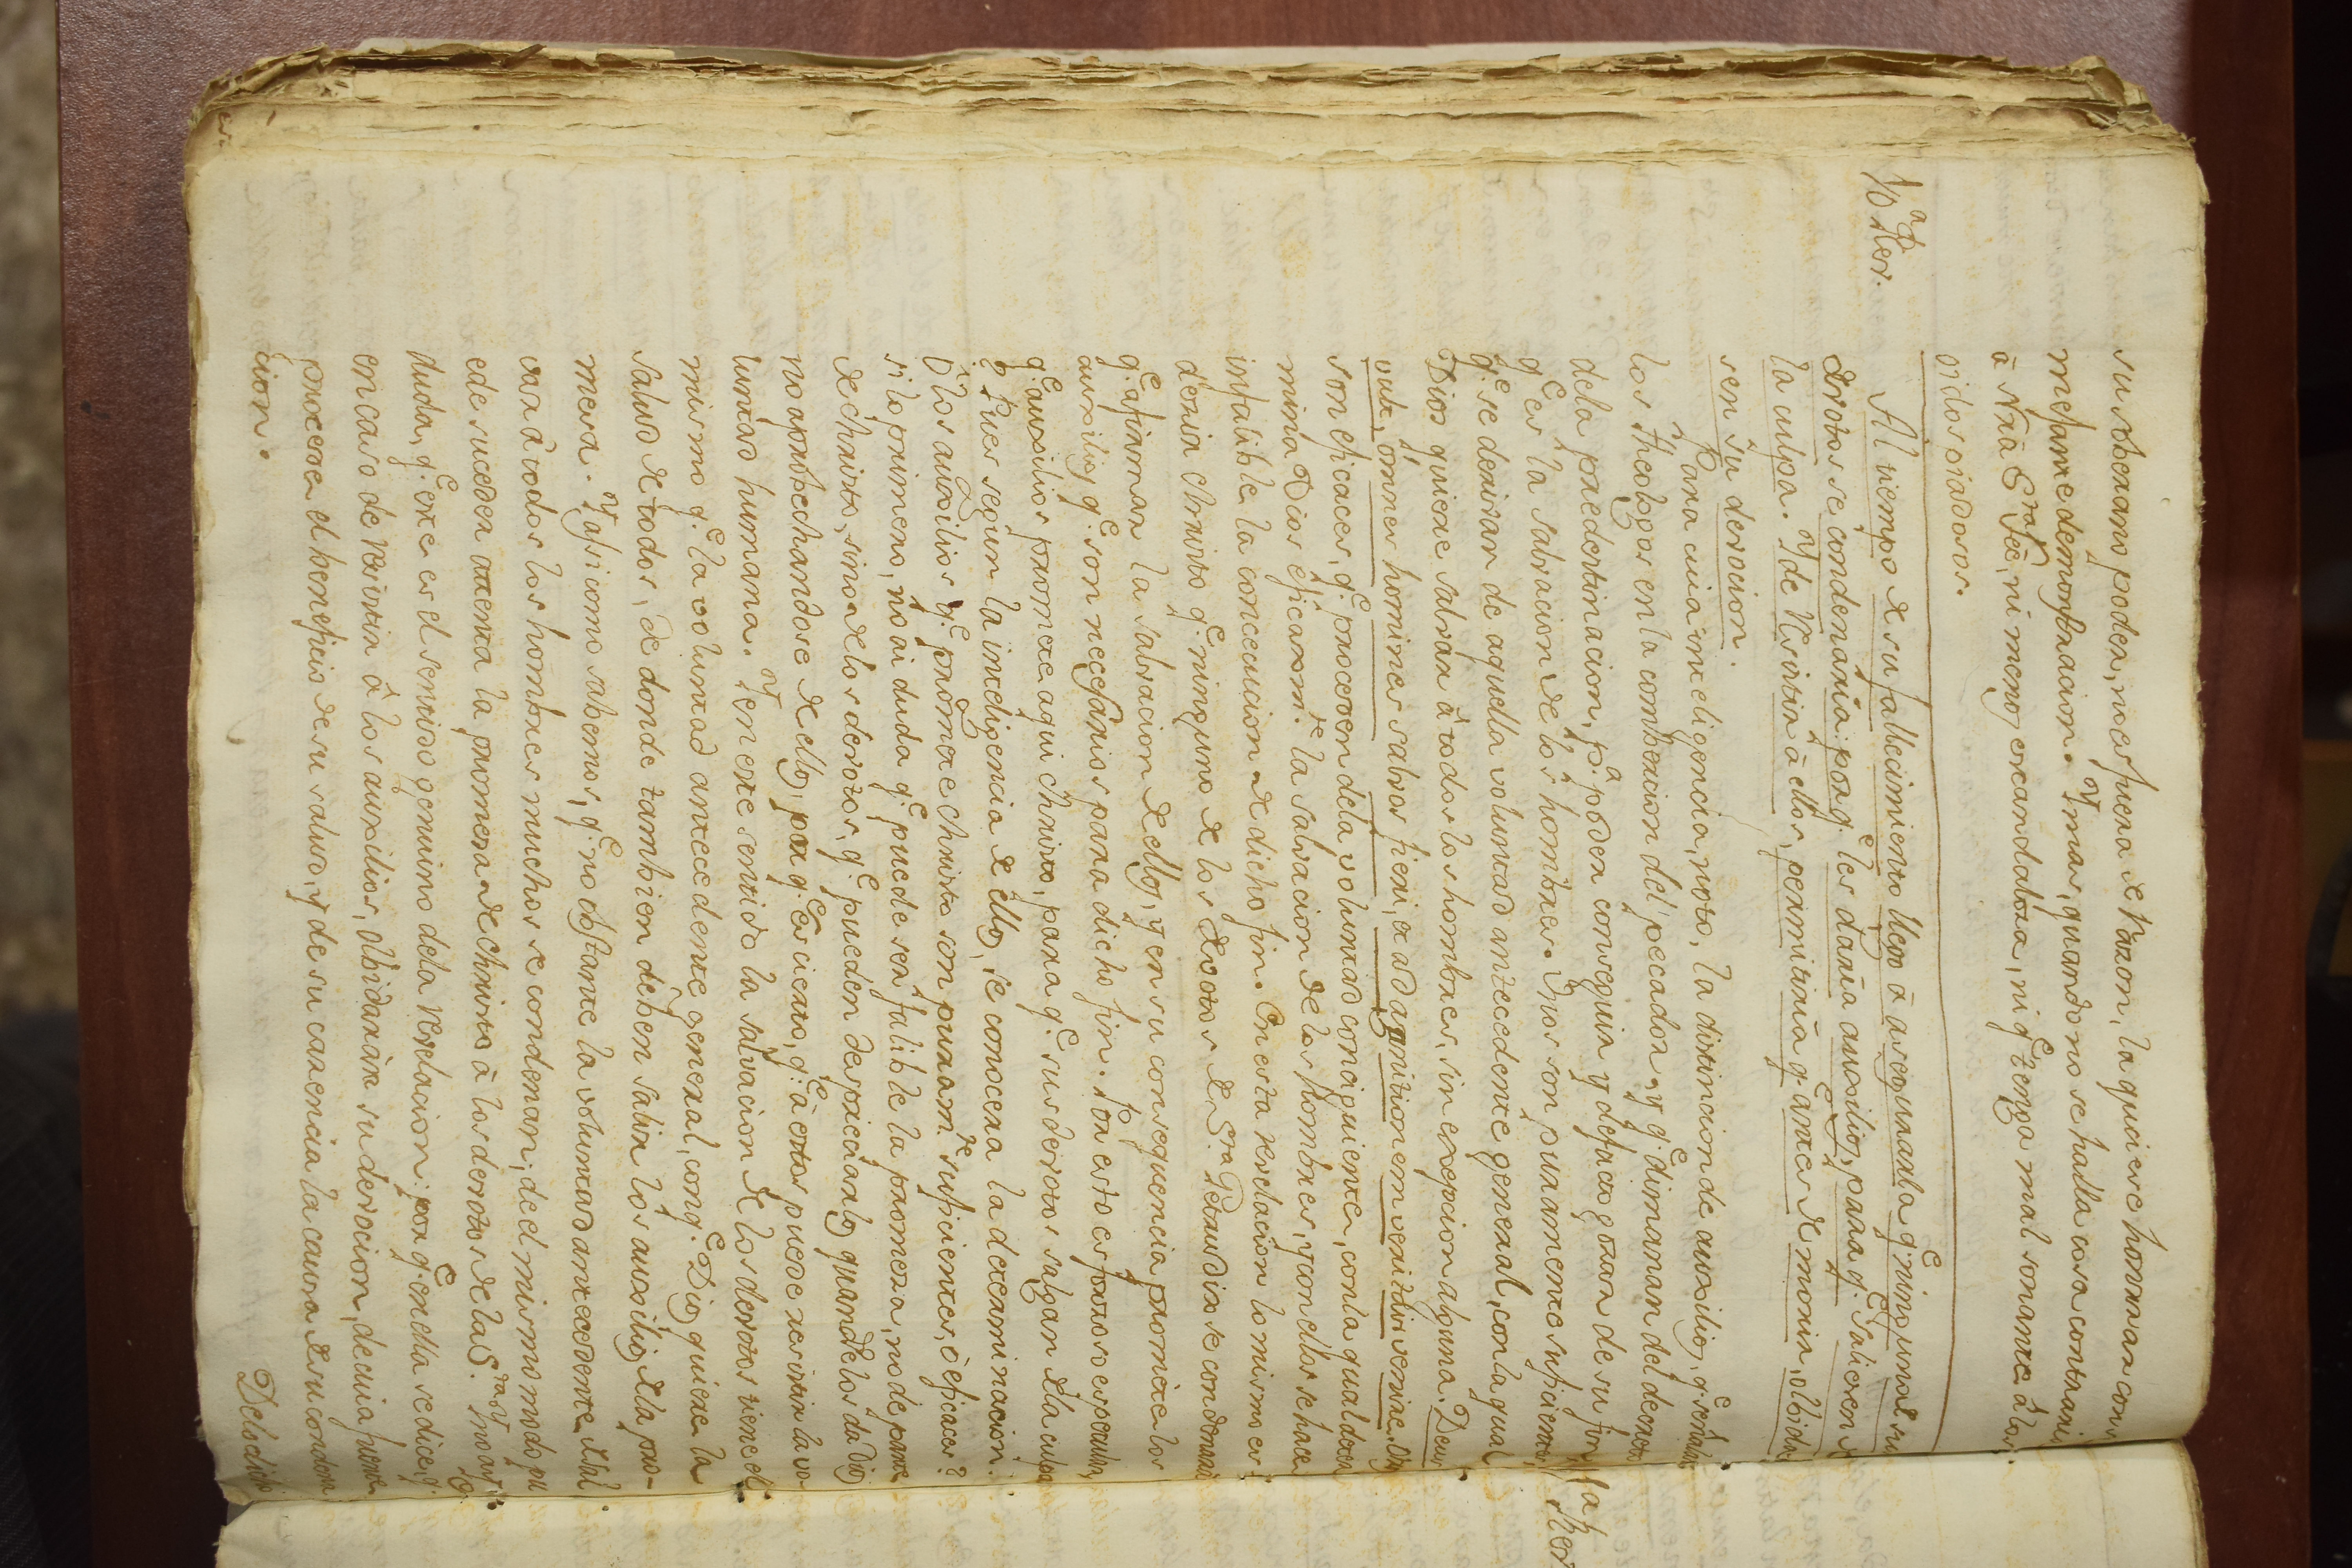 su soberano poder, no es fuera de razon, la quiere honrrar con
mejante demonstracion. Y mas, quando no se halla cosa contrari
à Nrã Sta Feè, ni menos escandalosa, ni q.e tenga mal sonante à los
oidos piadosos.
Al tiempo de su fallecimiento llegò à asegurarla q.e ninguno de su
devotos se condenaria: por q.e les daria auxilios, para q.e salieren de
la culpa. Y de resistir à ellos, permitiria q.e antes de morir, olbida
sen su devocion.
Para cuia inteligencia, noto, la distincion de auxilios, q.e señalan
los Theologos en la conbercion del pecador, y q.e dimanan del decreto
dela predestinacion, p.a poder conseguir y defacto gozar de su fin
q.e es la salvacion de los hombres. Unos son puramente suficientes,
q.e se derivan de aquella voluntad antecedente general, con la qual
Dios quiere salvar à todos los hombres, sin excepcion alguna: Deus
vult, omnes homines salvos fieri, et ad agnitionem veritatis venire. Otros
son eficaces, q.e proceden dela voluntad consiguiente, con la qual deter
mina Dios eficazm.te la salvacion de los hombres, y con ellos se hace
infalible la concecucion de dicho fin. En esta revelacion lo mismo es
dezir christo q.e ninguno de los devotos de S.ta Getrudix se condenarà
q.e afirman la salvacion de ellos, y en su consequencia promete los
auxilios, q.e son necesarios para dicho fin. Por esto es forzoso es
q.e auxilios promete aqui christo, para q.e sus devotos salgan de la culpa
? Pues segun la inteligencia de ellos, se conocera la determinacion.
O los auxilios q.e promete christo son puram.te suficientes, ò eficaces?
si lo primero, no ai duda q.e puede ser falible la promesa, no de parte
de christo, sino de los devotos, q.e pueden despreciarlos quando los da Dios
no aprobechandose de ellos, por q.e es cierto, q.e à estos puede resistir la vo
luntad humana. Y en este sentido la salvacion de los devotos tiene el
mismo q.e la voluntad antecedente general, con q.e Dios quiere la
salud de todos, de donde tambien deben salir los auxilios de la pro-
mesa. Y asi como sabemos, q.e no obstante la voluntad antecedente de sal
var à todos los hombres muchos se condenan; de el mismo modo pu
ede suceder attenta la promesa de christo à los devotos de la S.ta Y no ai
duda, q.e este es el sentido genuino dela revelacion: por q.e en ella se dice, q.e
en caso de resistir à los auxilios, olbidaràn su devocion, de cuia fuente
procede el beneficio de su salud, y de su carencia la causa de su condena
cion.
De lo dicho